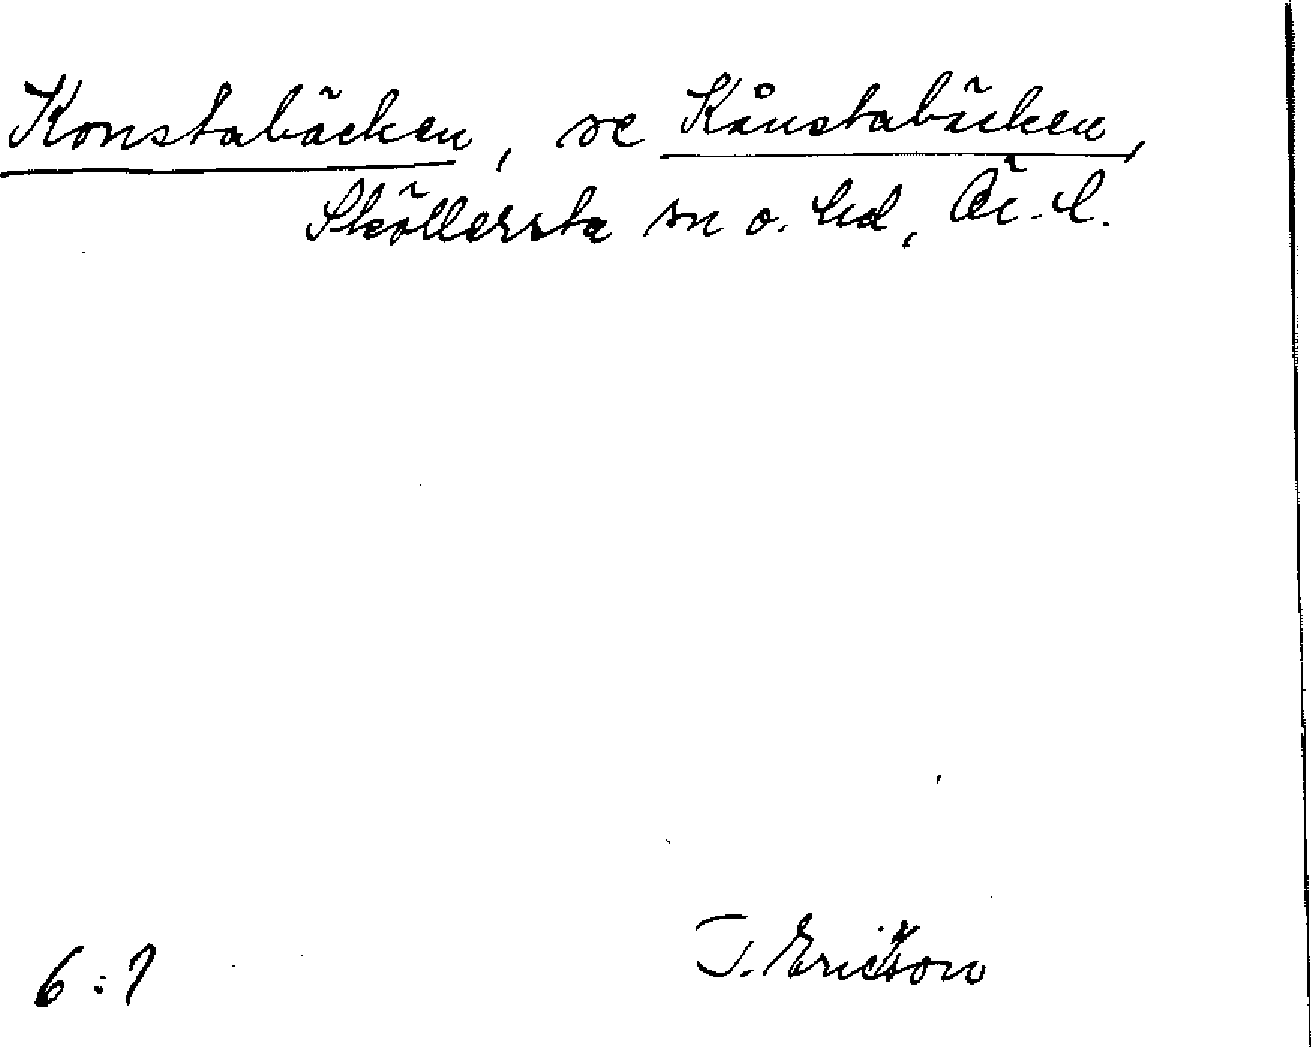 Konstabäcken, se Kånstabäcken,
Sköllersta sn o. hd, Ör. l.
6:7
J. Ericson